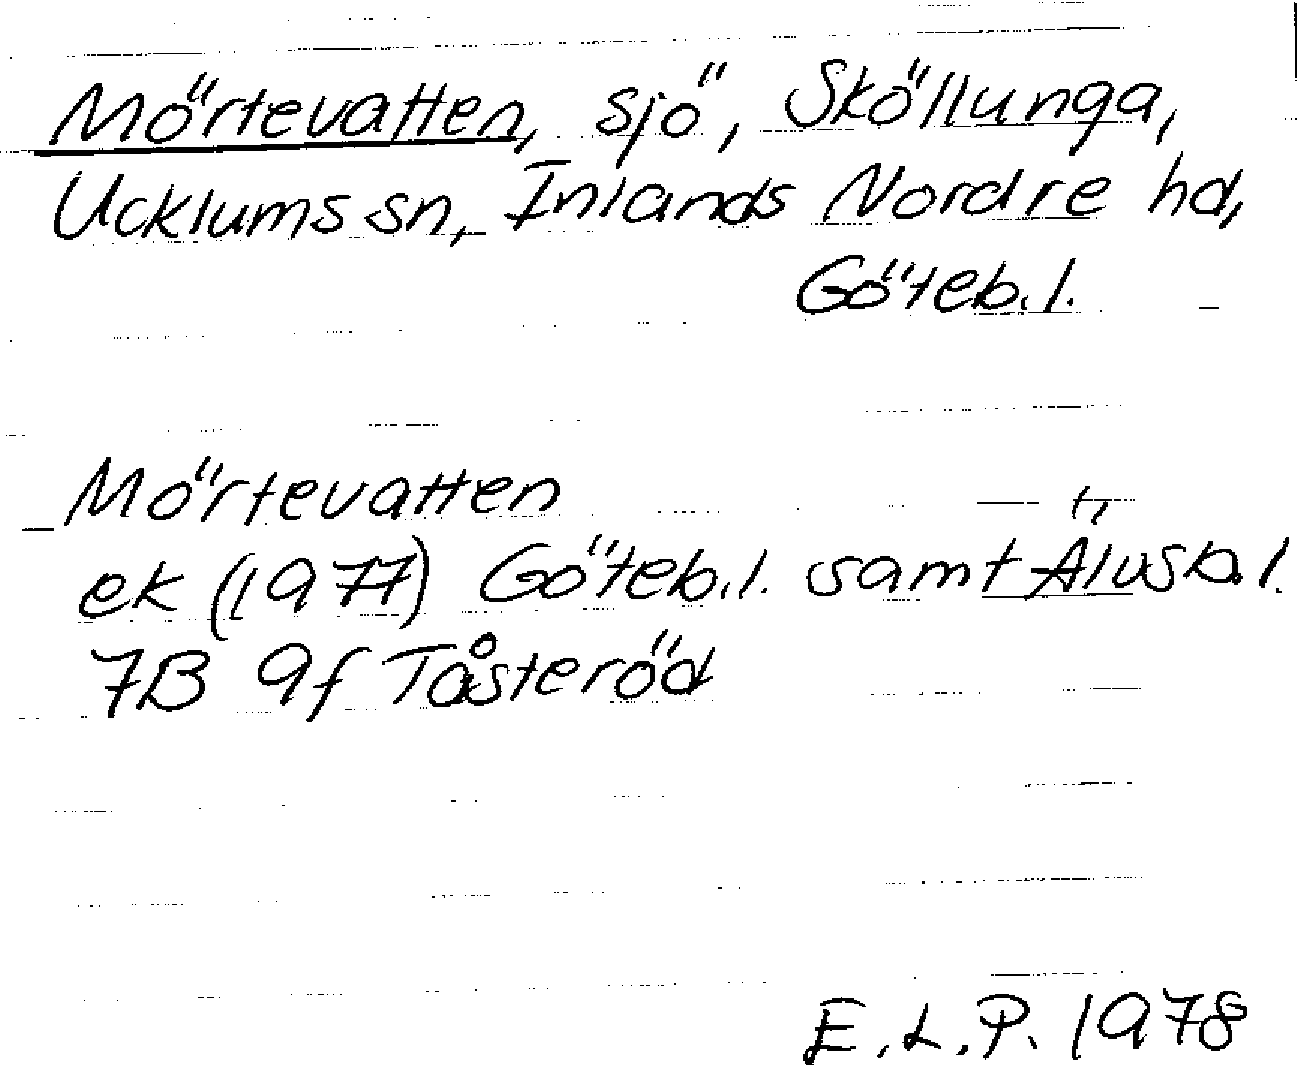 Mörtevatten, sjö, Sköllunga,
Ucklums sn, Inlands Nordre hd,
Göteb. l.
Mörtevatten
ek (1977) Göteb. l. samt Älvsb. l.
7B 9f Tåsteröd
E.L.P. 1978